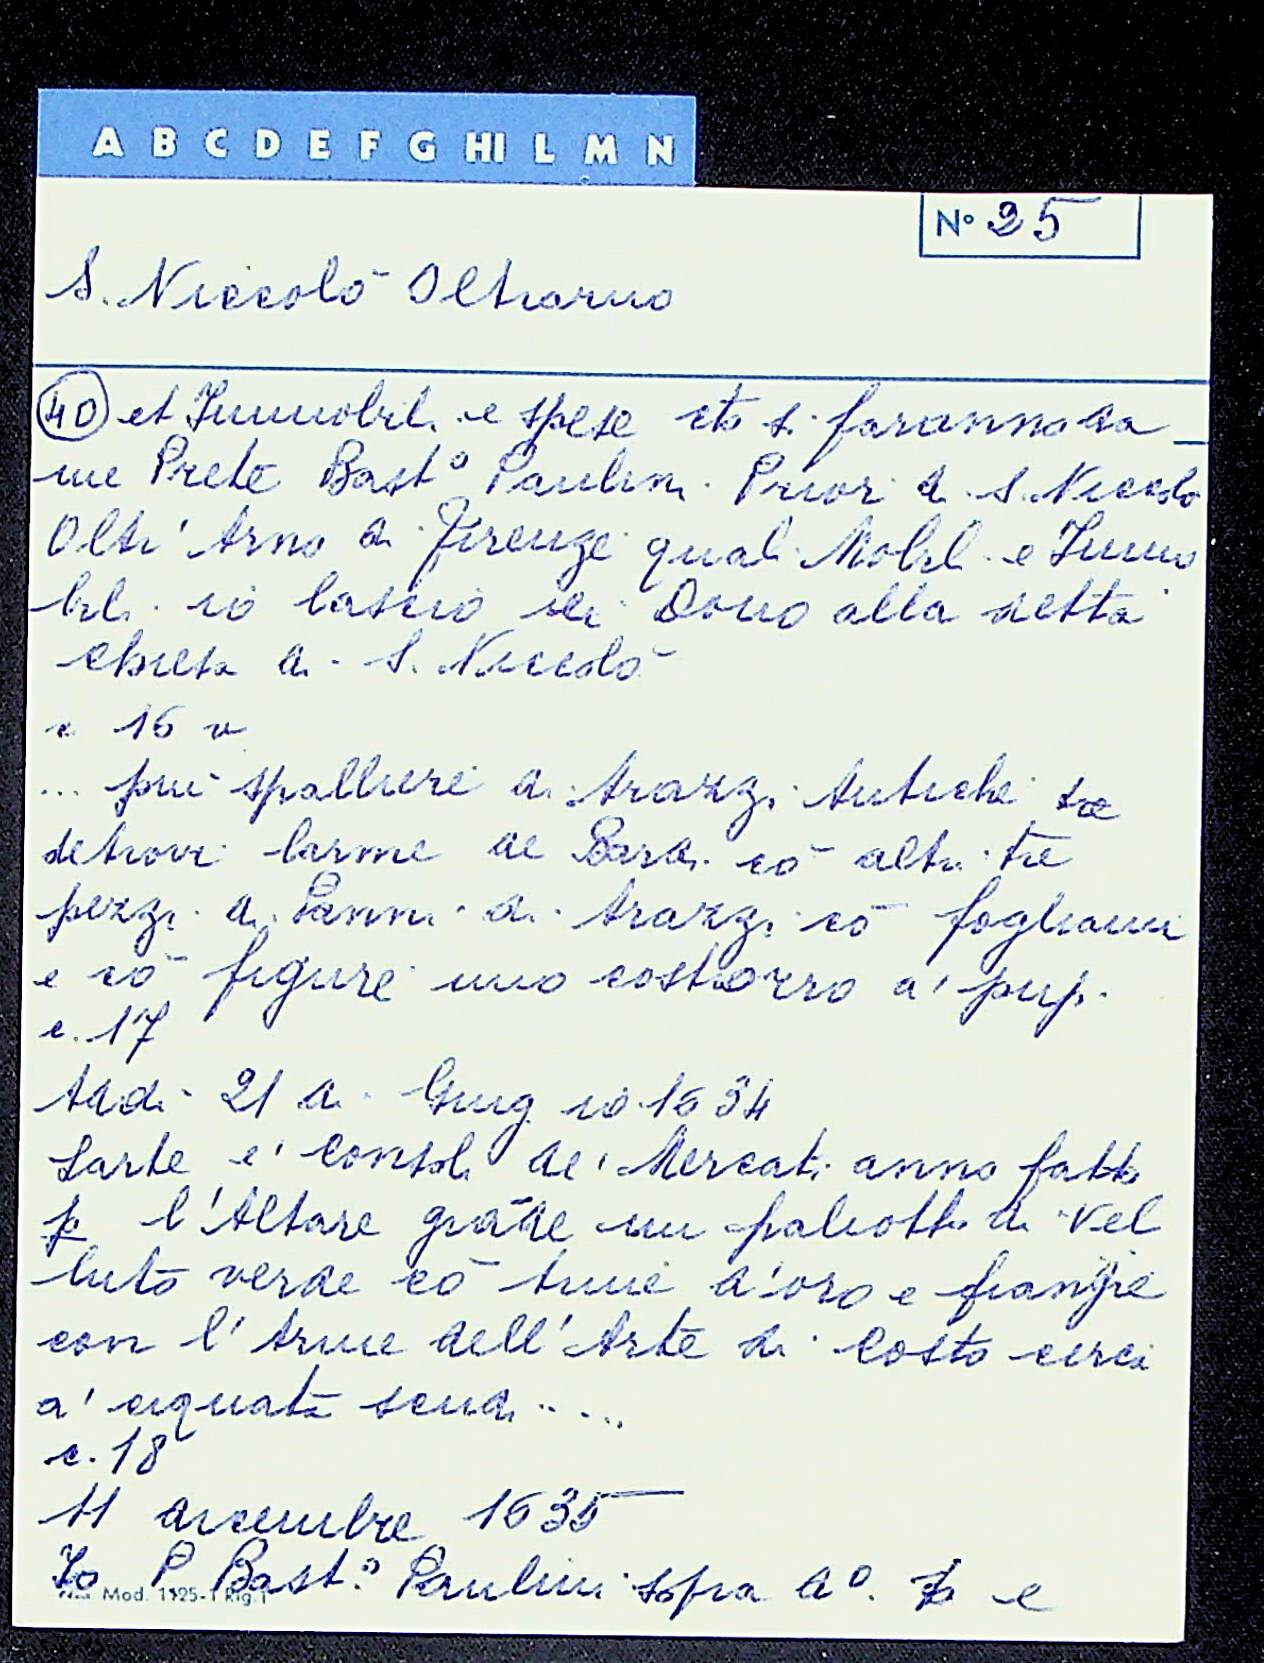 A B C D E F G HI L M N
N° 25
S. Niccolò Oltrarno
40 et Immobili e spese che si faranno da
me Prete Bast° Paulini Prior di S. Niccolo
Oltr'Arno di Firenze quali Mobili e Immo
bili io lascio in Dono alla detta
chiesa di S. Niccolò
c 16 v
... più spalliere di Arazzi Antiche
detrovi larme de Bardi cō altri tre
pezzi di Panni di Arazzi cō fogliami
e cō figure uno
c. 17
Adi 21 di Giug io 1634
Larte e' Consoli de' Mercat. anno fatto
p l'Altare grāde un paliotto di Vel
luto verde cō trine d'oro e frangie
con l'Arme dell'Arte di Costo circa
a' cīquāta scudi ....
c. 18
11 dicembre 1635
Io P Bast.° Paulini sopra d°. e
Mod. 1125-1 Rig.1